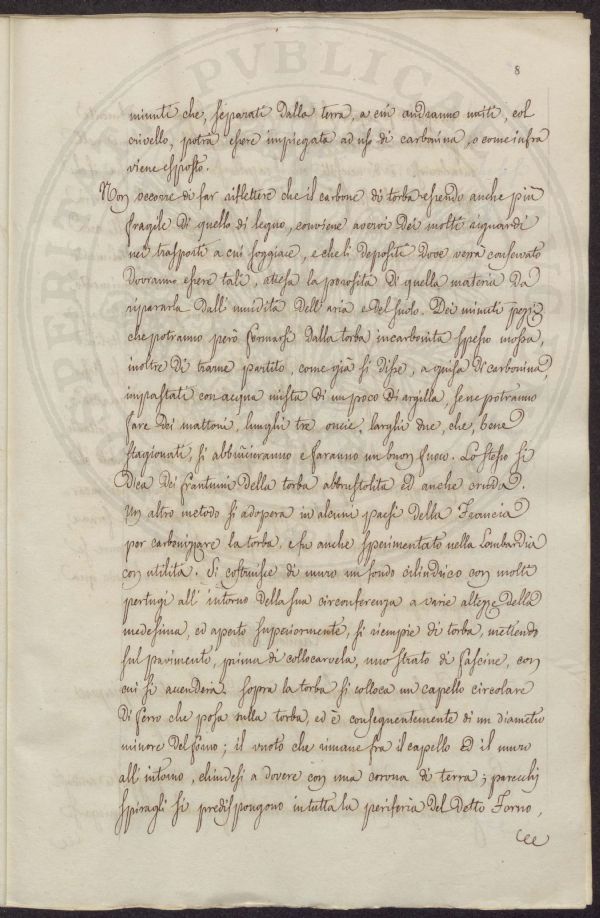 8
minuti che, separati dalla terra, a cui andranno uniti, col
crivello, potrà essere impiegata ad uso di carbonina, o come infra
viene esposto.
Non occorre di far riflettere che il carbone di torba essendo anche più
fragile di quello di legno, conviene avervi dei molti riguardi
nei trasporti a cui soggiace, e che li depositi dove verrà conservato
dovranno essere tali, attesa la porosità di quella materia da
ripararla dall'umidità dell'aria e del suolo. Dei minuti pezzi
che potranno però formarsi dalla torba incarbonita spesso mossa,
inoltre di trarne partito, come già si disse, a guisa di carbonina,
impastati con acqua mista di un poco di argilla, se ne potranno
fare dei mattoni, lunghi tre oncie, larghi due, che, bene
stagionati, si abbrucieranno e faranno un buon fuoco. Lo stesso si
dica dei frantumi della torba abbrustolita ed anche cruda.
Un altro metodo si adopera in alcuni paesi della Francia
per carbonizzare la torba, e fu anche sperimentato nella Lombardia
con utilità. Si costruisce di muro un fondo cilindrico con molti
pertugi all'intorno della sua circonferenza a varie altezze della
medesima, ed aperto superiormente, si riempie di torba, mettendo
sul pavimento, prima di collocarvela, uno strato di fascine, con
cui si accenderà. Sopra la torba si colloca un capello circolare
di ferro che posa sulla torba, ed è conseguentemente di un diametro
minore del forno; il vuoto che rimane fra il capello ed il muro
all'intorno, chiudesi a dovere con una corona di terra; parecchj
spiragli si predispongono in tutta la periferia del detto Forno,